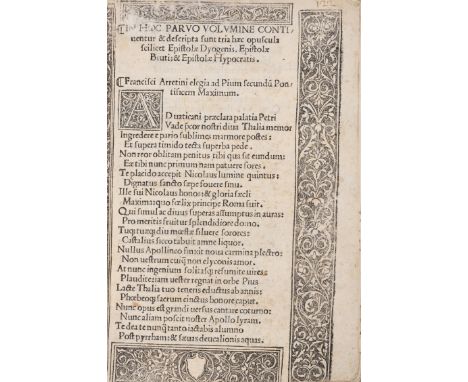 IN HOC PARVO VOLVMINE CONTI
nentur & descripta sunt tria hæc opuscula
scilicet Epistolæ Dyogenis. Epistolæ
Bruti & Epistolæ Hypocratis.
Francisci Arretini elegia ad Pium secundū Pon
tificem Maximum.
AD uaticani præclara palatia Petri
Vade p̃cor nostri diua Thalia memor
Ingredere e pario sublimes marmore postes:
Et supera timido tecta superba pede.
Non reor oblitam penitus tibi qua sit eundum:
Ex tibi nunc primum nam patuere fores.
Te placido accepit Nicolaus lumine quintus:
Dignatus sancto sæpe fouere sinu.
Ille fui Nicolaus honor: & gloria sæcli
Maxima: quo fœlix principe Roma fuit.
Qui simul ac diuus superas assumptus in auras:
Pro meritis fruitur splendidiore domo.
Tuq; tunq; diu mœstæ siluere sorores:
Castalius sicco tabuit amne liquor.
Nullus Apollineo finxit noua carmina plectro:
Non uestrum cuiq̃ non elyconis amor.
At nunc ingenium solitasq; resumite uires:
Plaudite iam uester regnat in orbe Pius
Lacte Thalia tuo teneris eductus ab annis:
Phœbeoq; sacrum cinctus honore caput.
Nunc opus est grandi uersus cantare coturno:
Nunc aliam poscit noster Apollo lyram.
Te dea te nunq̃ tanto iactabis alumno
Post pyrrham: & sæuas deucalionis aquas.